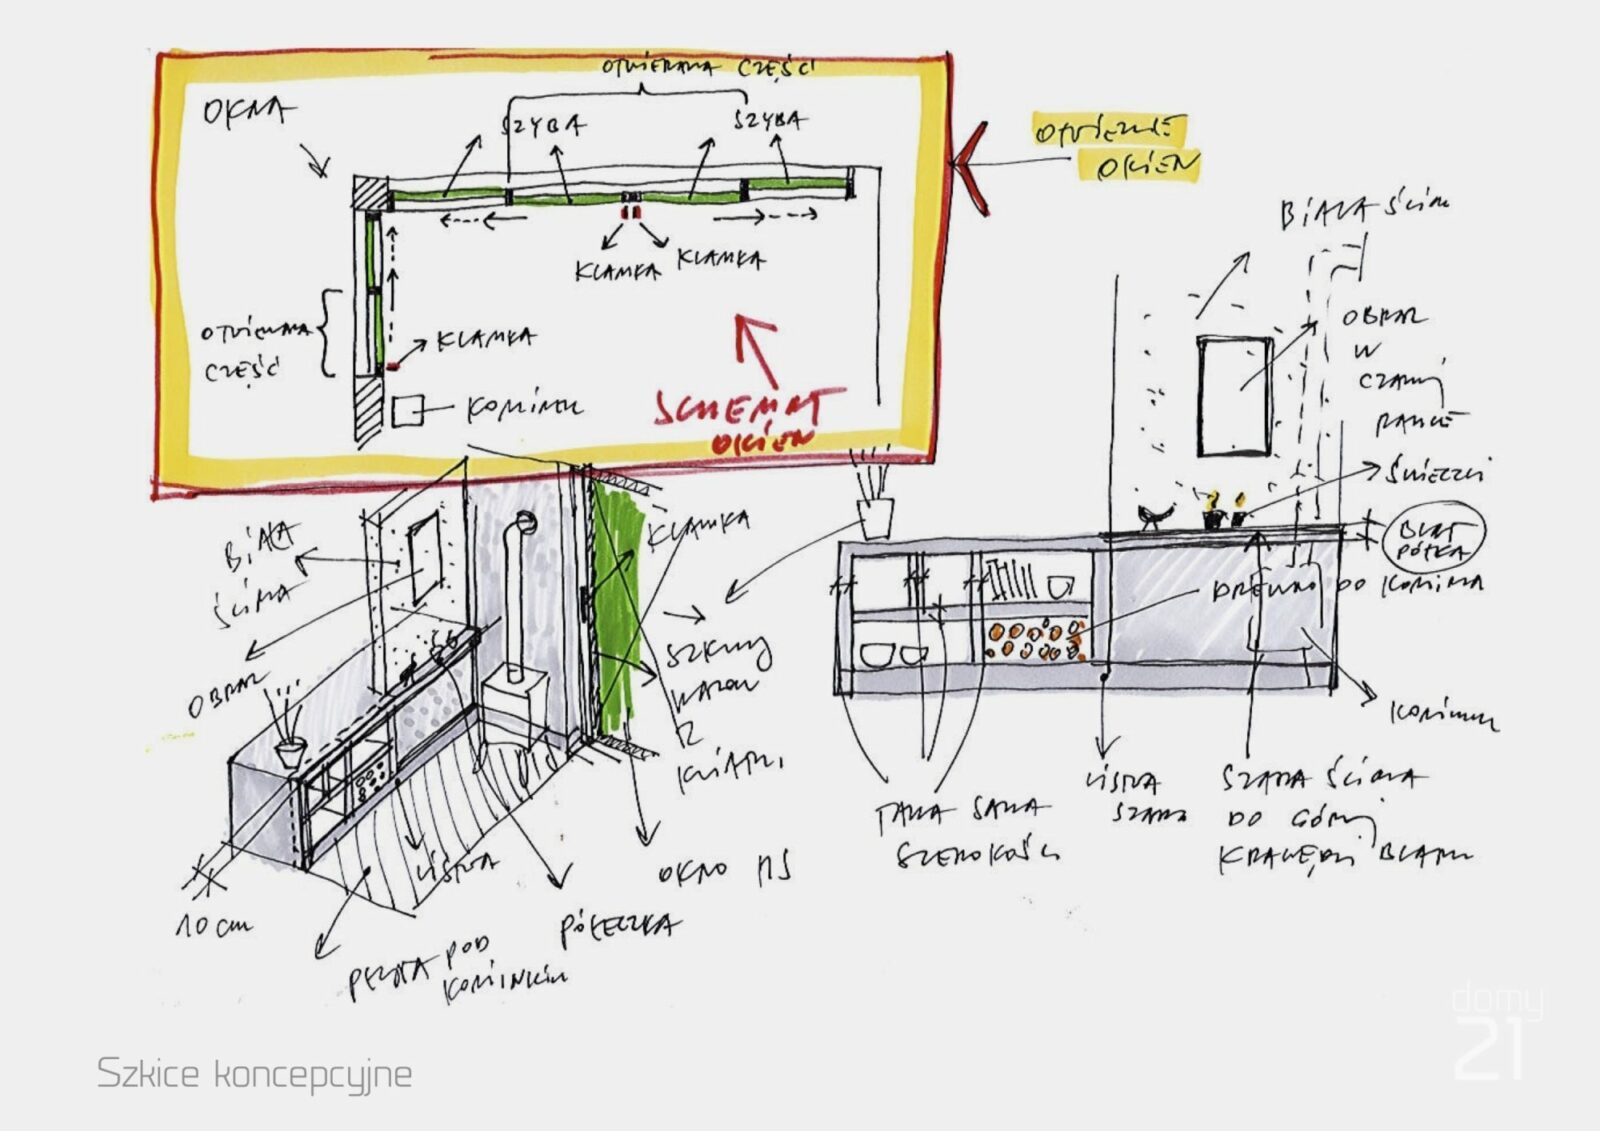 OKNA
OTWIERANA CZĘŚĆ
SZYBA
SZYBA
KLAMKA
KLAMKA
OTWIERANA
CZĘŚĆ
KLAMKA
KOMINEK
SCHEMAT
OKIEN
OTWIERANIE
OKIEN
BIAŁA ŚCIANA
OBRAZ
W
CZARNEJ
RAMIE
ŚWIECZKI
BLAT
PÓŁKA
DREWNO DO KOMINKA
KOMINEK
TAKA SAMA
SZEROKOŚĆ
LISTWA
SZARA
SZARA ŚCIANA
DO GÓRNEJ
KRAWĘDZI BLATU
BIAŁA
ŚCIANA
OBRAZ
KLAMKA
SZKLANY
WAZON
Z
KWIATKI
10 cm
LISTWA
PÓŁECZKA
OKNO HS
PŁYTA POD
KOMINKIEM
Szkice koncepcyjne
domy
21